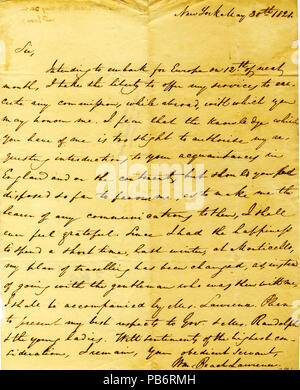 New York May 30th 1821.
Sir,
Intending to embark for Europe on 12th of next
month, I take the liberty to offer my services to exe-
cute any commissions, while abroad, with which you
may honour me. I fear that the knowledge which
you have of me is too slight to authorise my re-
questing introductions to your acquaintances in
England and on the continent, but should you feel
disposed so far to favour me, as to make me the
bearer of any communications to them, I shall
ever feel grateful. Since I had the happiness
to spend a short time, last winter, at Monticello,
my plan of travelling has been changed, as instead
of going with the gentleman who was then with me,
I shall be accompanied by Mrs. Lawrence. Please
to present my best respects to Gov. & Mrs. Randolph
& the young ladies. With sentiments of the highest con-
sideration, I remain, your obedient Servant
Wm. Beach Lawrence
alamy